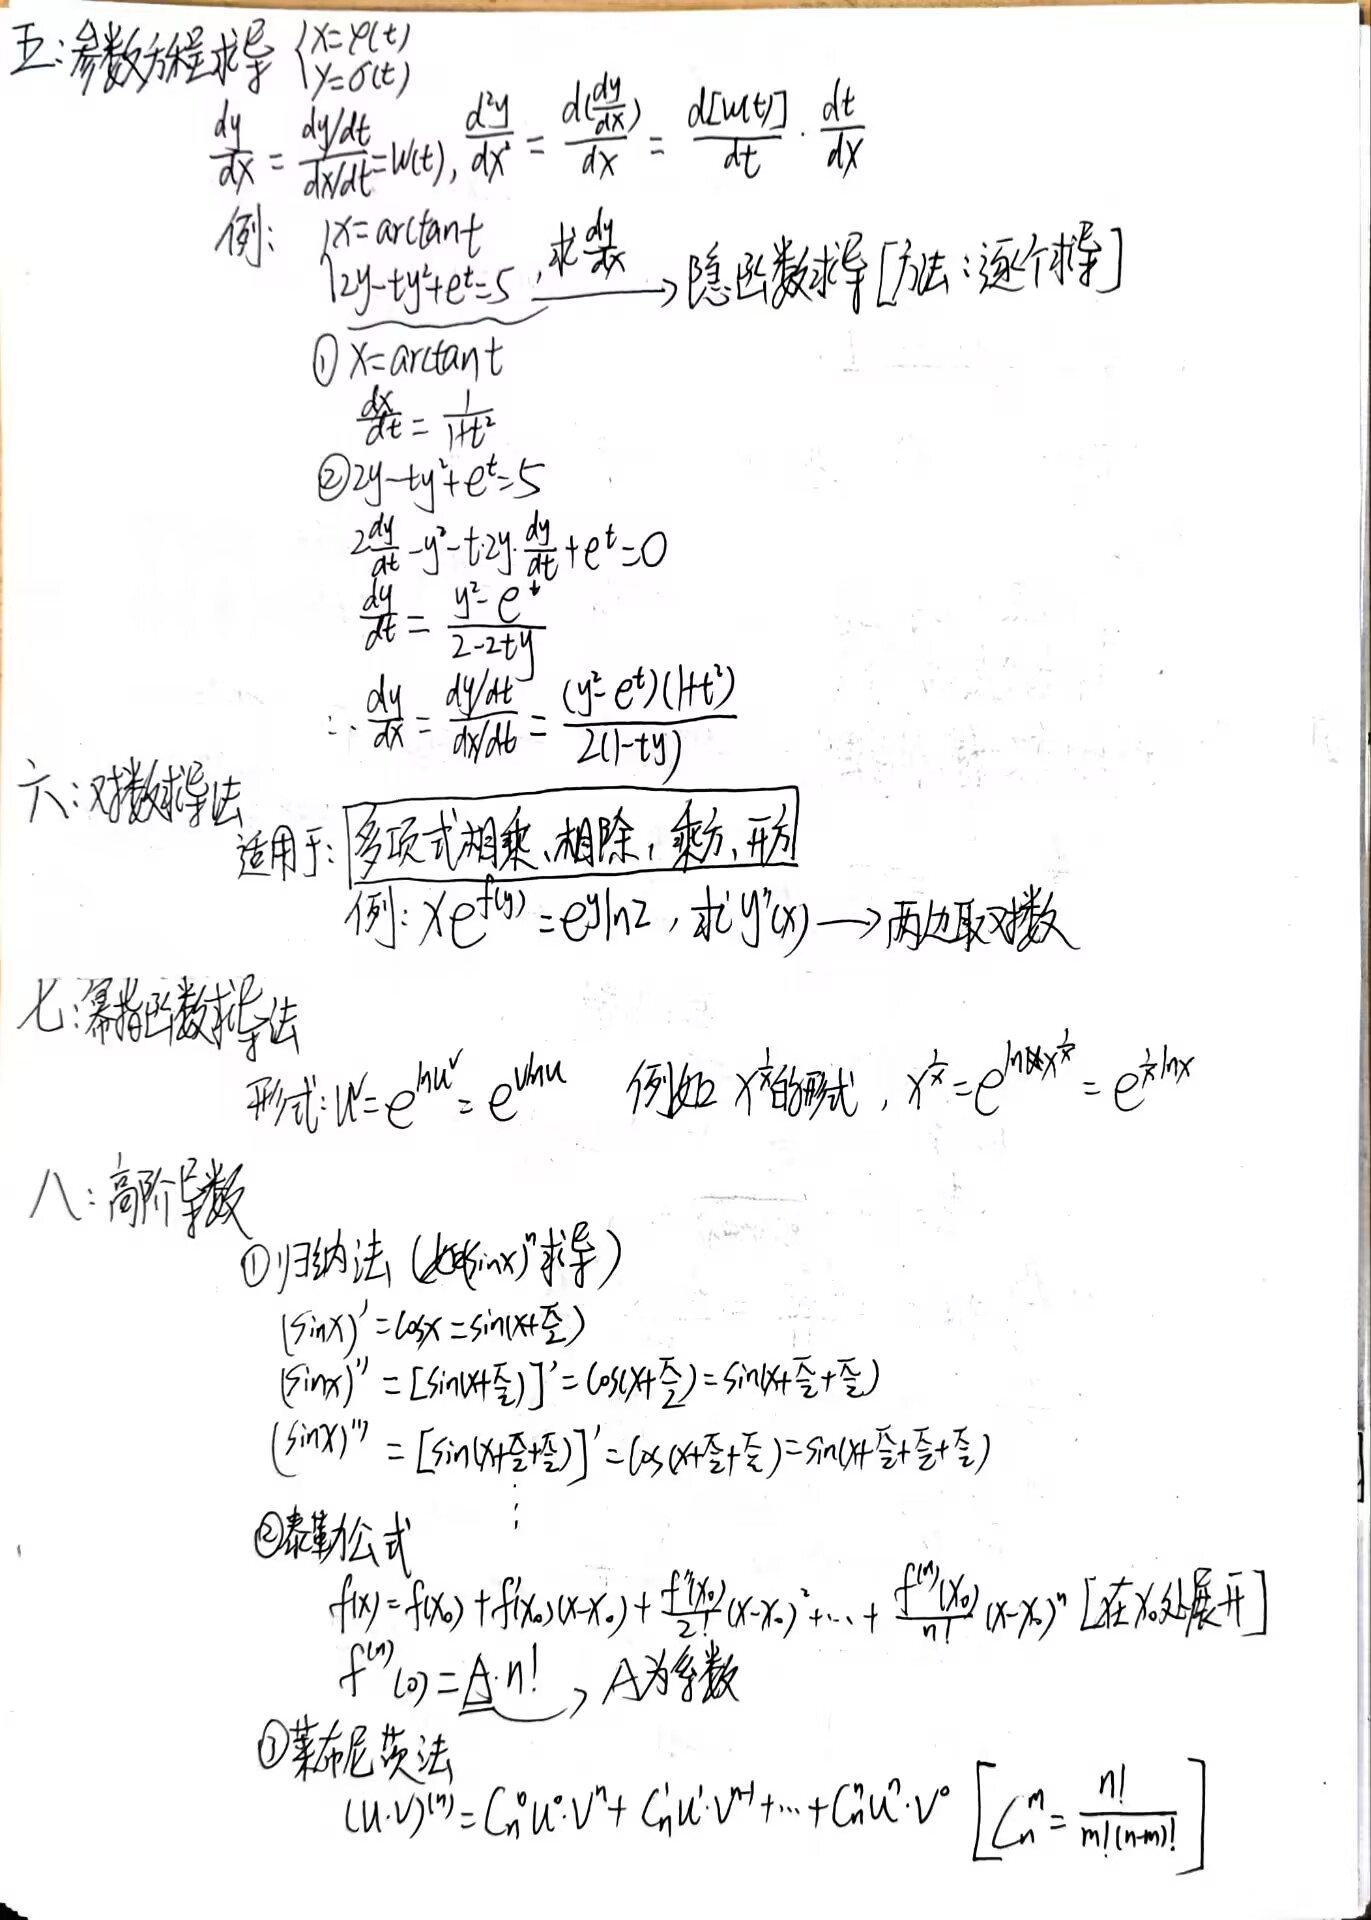 五:参数方程求导 {x=φ(t) y=σ(t)
dy/dx = (dy/dt)/(dx/dt) = W(t), d²y/dx² = d(dy/dx)/dx = d[W(t)]/dt · dt/dx
例: {x=arctant 2y-ty²+e^t=5, 求dy/dx → 隐函数求导[方法:逐个求导]
① x=arctant
dx/dt = 1/(1+t²)
② 2y-ty²+e^t=5
2dy/dt - y² - t·2y·dy/dt + e^t = 0
dy/dt = (y²-e^t)/(2-2ty)
∴ dy/dx = (dy/dt)/(dx/dt) = (y²-e^t)(1+t²)/2(1-ty)
六:对数求导法
适用于: 多项式相乘、相除,乘方、开方
例: xe^f(y) = e^y ln2, 求y''(x) → 两边取对数
七:幂指函数求导法
形式: u^v = e^(lnu^v) = e^(vlnu) 例如 x^(1/x)的形式, x^(1/x) = e^(lnx^(1/x)) = e^(1/x lnx)
八:高阶导数
①归纳法 (如(sinx)^n求导)
(sinx)' = cosx = sin(x+π/2)
(sinx)'' = [sin(x+π/2)]' = cos(x+π/2) = sin(x+π/2+π/2)
(sinx)''' = [sin(x+π/2+π/2)]' = cos(x+π/2+π/2) = sin(x+π/2+π/2+π/2)
⋮
②泰勒公式
f(x) = f(x₀) + f'(x₀)(x-x₀) + f''(x₀)/2! (x-x₀)² + … + f^(n)(x₀)/n! (x-x₀)^n [在x₀处展开]
f^(n)(0) = A·n! , A为系数
③莱布尼茨法
(u·v)^(n) = C_n^0 u^0·v^n + C_n^1 u'·v^(n-1) + … + C_n^n u^n·v^0 [C_n^m = n!/(m!(n-m)!)]